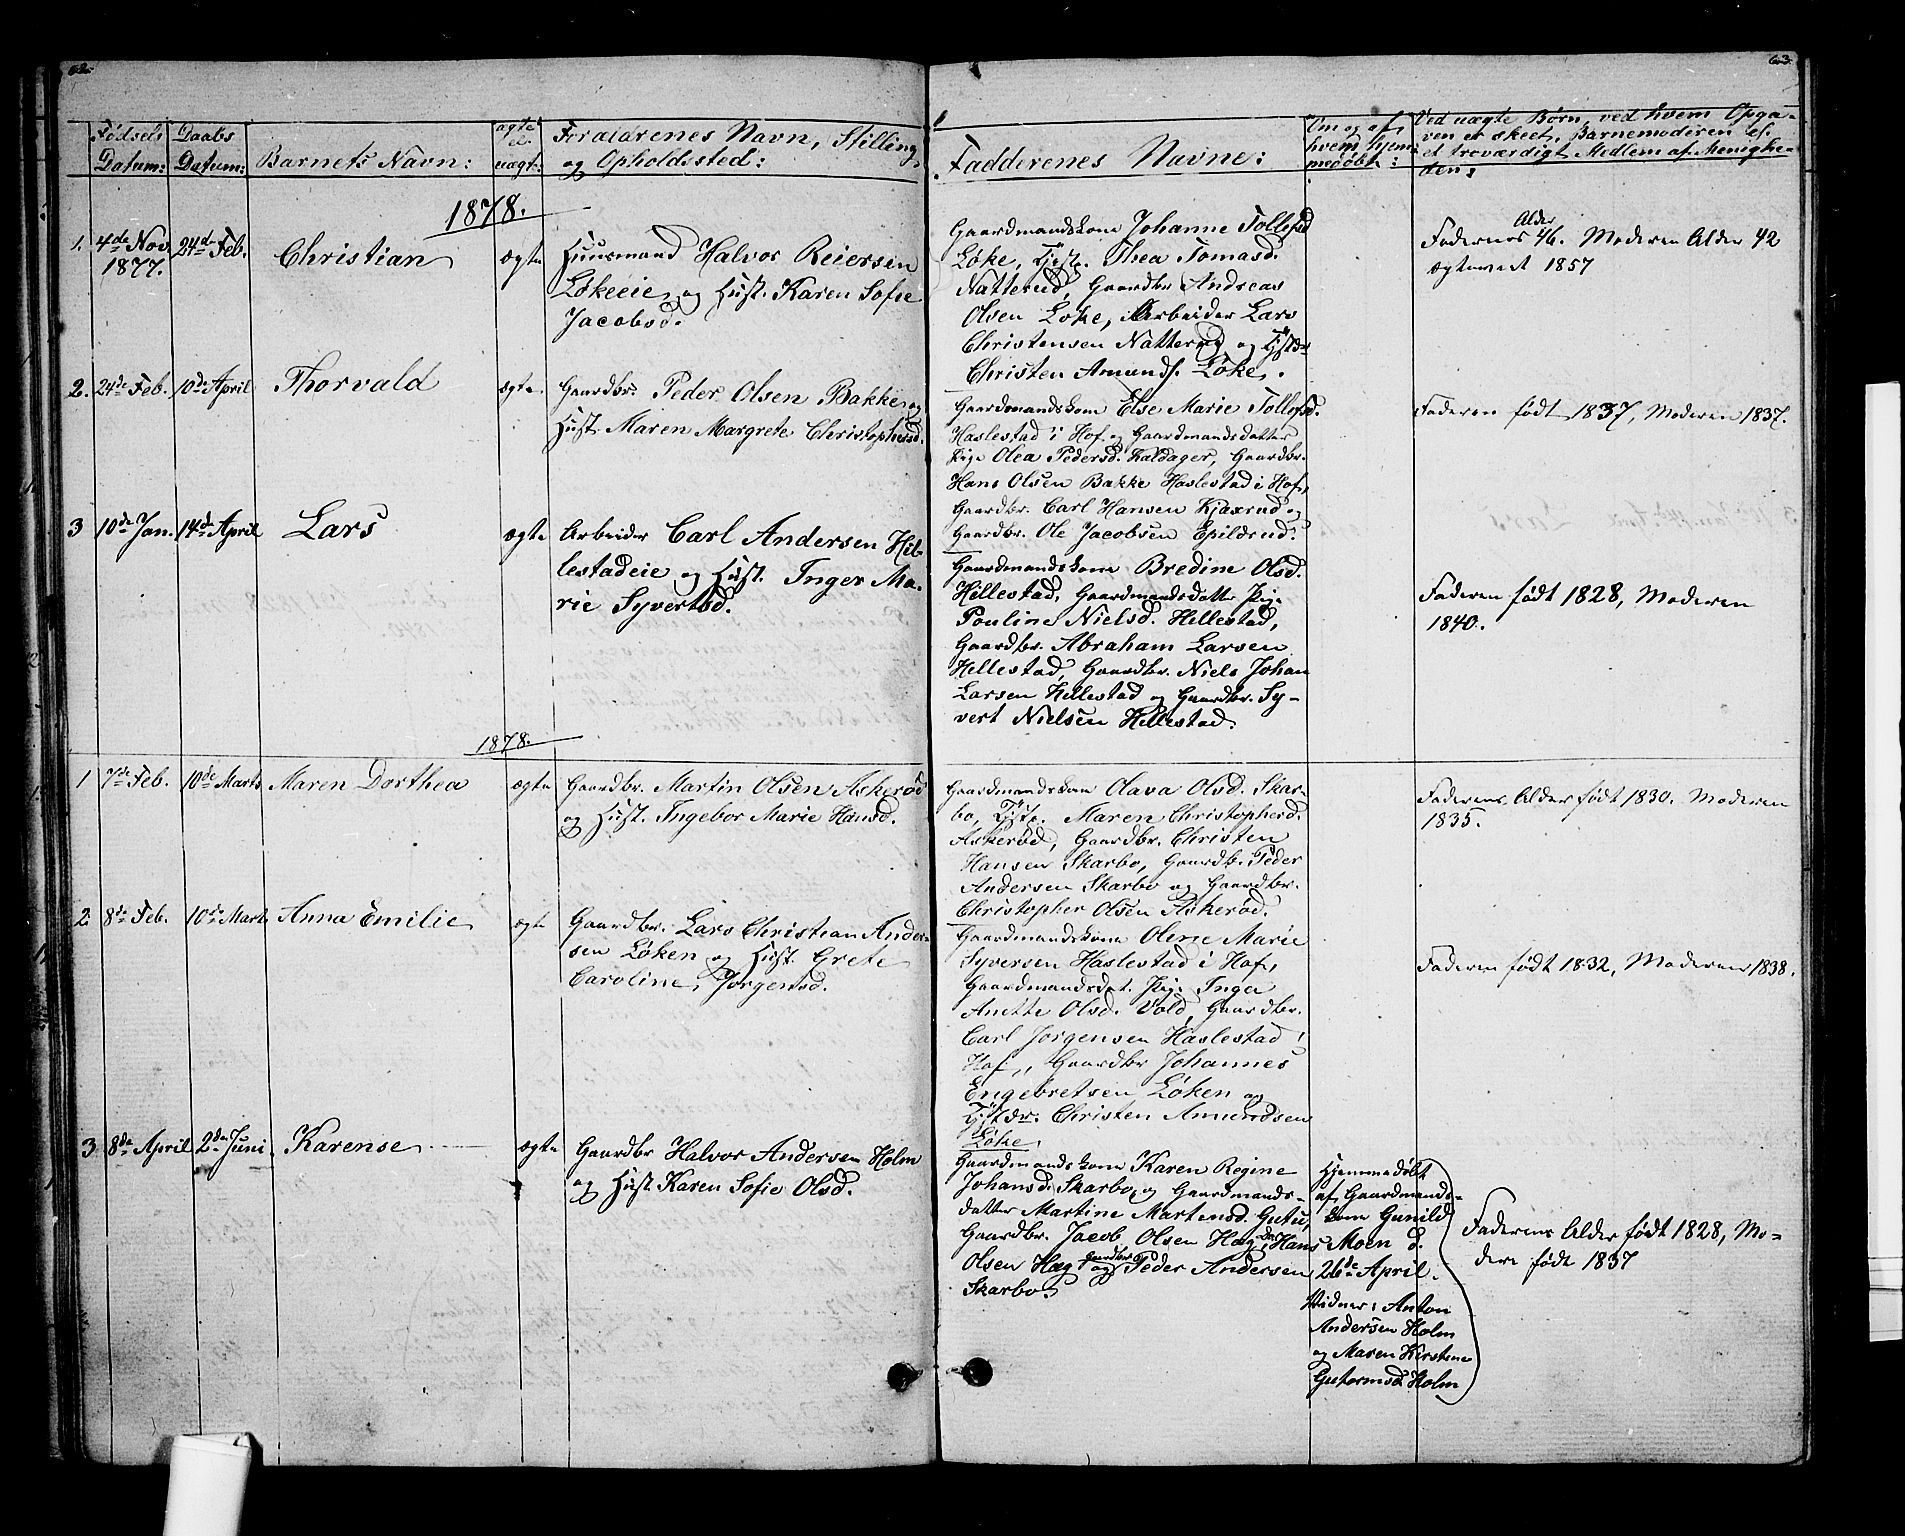 62.
Fødsels
Datum:
Daabs
Datum:
Barnets Navn:
ægte
el.
uægte:
Forældrenes Navn, Stilling
og Opholdssted:
1878.
1. 4de Nov. 1877. 24de Feb. Christian ægte Huusmand Halvor Reiersen
Løkeeie og Hust. Karen Sofie
Jacobsd.
2. 24de Feb. 10de April Thorvald ægte. Gaardbr. Peder Olsen Bakke og
Hust. Maren Margrete Christophersd.
3 10de Jan. 14de April Lars ægte Arbeider Carl Andersen Hil-
lestadeie og Hust. Inger Ma-
rie Syvertsd.
1878.
1 7de Feb. 10de Marts Maren Dorthea ægte Gaardbr. Martin Olsen Askerød
og Hust. Ingebor Marie Hansd.
2. 8de Feb. 10de Mart. Anna Emilie ægte Gaardbr. Lars Christian Ander-
sen Løken og Hust. Grete
Caroline Jørgensd.
3 8de April 2de Juni. Karense ægte Gaardbr Halvor Andersen Holm
og Hust. Karen Sofie Olsd.
63.
Faddernes Navne:
Om og af
hvem hjem-
medøbt:
Ved uægte Børn, ved hvem Opga-
ven er skeet. Barnemoderen el.
et troværdigt Medlem af Menighe-
den:
Gaardmandskone Johanne Tollefsd
Løke, Tjste. Thea Tomasd.
Natterud, Gaardbr Andreas
Olsen Løke, Arbeider Lars
Christensen Natterud og Tjstdr
Christen Amunds. Løke.
Faderens Alder 46. Moderen Alder 42
Ægteviet 1857
Gaardmandskone Else Marie Tollefsd.
Haslestad i Hof og Gaardmandsdatter
Pige Olea Pedersd. Kaldager, Gaardbr.
Hans Olsen Bakke Haslestad i Hof,
Gaardbr. Carl Hansen Kjæxrud og
Gaardbr. Ole Jacobsen Epildrud.
Faderen født 1837, Moderen 1837.
Gaardmandskone Bredine Olsd.
Hillestad, Gaardmandsdatter Pige
Pouline Nielsd. Hellestad,
Gaardbr. Abraham Larsen
Hellestad, Gaardbr. Niels Johan
Larsen Hellestad og Gaardbr. Sy-
vert Nielsen Hellestad.
Faderen født 1828, Moderen
1840.
Gaardmandskone Olava Olsd. Skar-
bo, Tjste. Maren Christophersd.
Askerød, Gaardbr. Christen
Hansen Skarbo, Gaardb. Peder
Andersen Skarbo og Gaardbr.
Christopher Olsen Askerød.
Faderens Alder født 1830. Moderen
1835.
Gaardmandskone Olene Marie
Syversen Haslestad i Hof,
Gaardmandsdat. Pige Inger
Anette Olsd. Vold, Gaardbr.
Carl Jørgensen Haslestad i
Hof, Gaardbr Johannes
Engebretsen Løken og
Tjstdr. Christen Amundsen
Løke.
Faderen født 1832, Moderen 1838.
Gaardmandskone Karen Regine
Johansd. Skarbo, og Gaardmands-
datter Martine Martensd. Gutu,
Gaardbr. Jacob Olsen Hæg, Hans
Olsen Hæg og Gaardbr Peder Andersen
Skarbo.
Hjemmedøbt
af Gaardmands-
kone Gunild
Moen d.
26de April.
Vidner: Anton
Andersen Holm
og Maren Kirstine
Gutormsd Holm
Faderens Alder født 1828, Mo-
dere født 1837